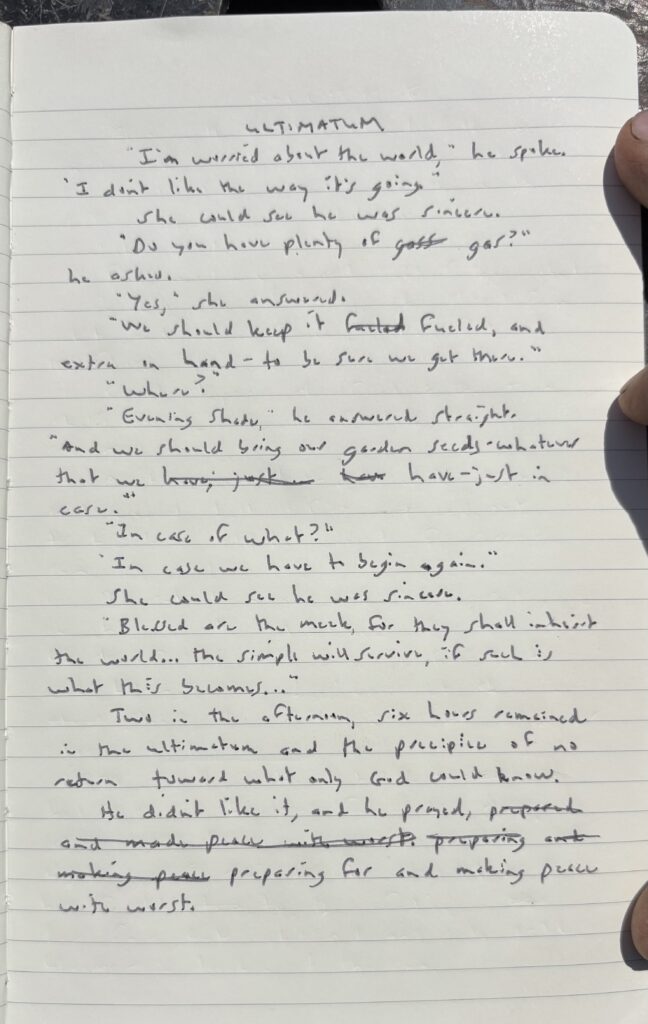 ULTIMATUM
"I'm worried about the world," he spoke.
"I don't like the way it's going."
She could see he was sincere.
"Do you have plenty of gass gas?"
he asked.
"Yes," she answered.
"We should keep it fueled, and
extra on hand - to be sure we get there."
"Where?"
"Evening Shade," he answered straight.
"And we should bring our garden seeds - whatever
that we have, just have have - just in
case."
"In case of what?"
"In case we have to begin again."
She could see he was sincere.
"Blessed are the meek, for they shall inherit
the world... the simple will survive, if such is
what this becomes..."
Two in the afternoon, six hours remained
in the ultimatum and the precipice of no
return toward what only God could know.
He didn't like it, and he prayed, prepared
and made peace with worst. preparing and
making peace preparing for and making peace
with worst.